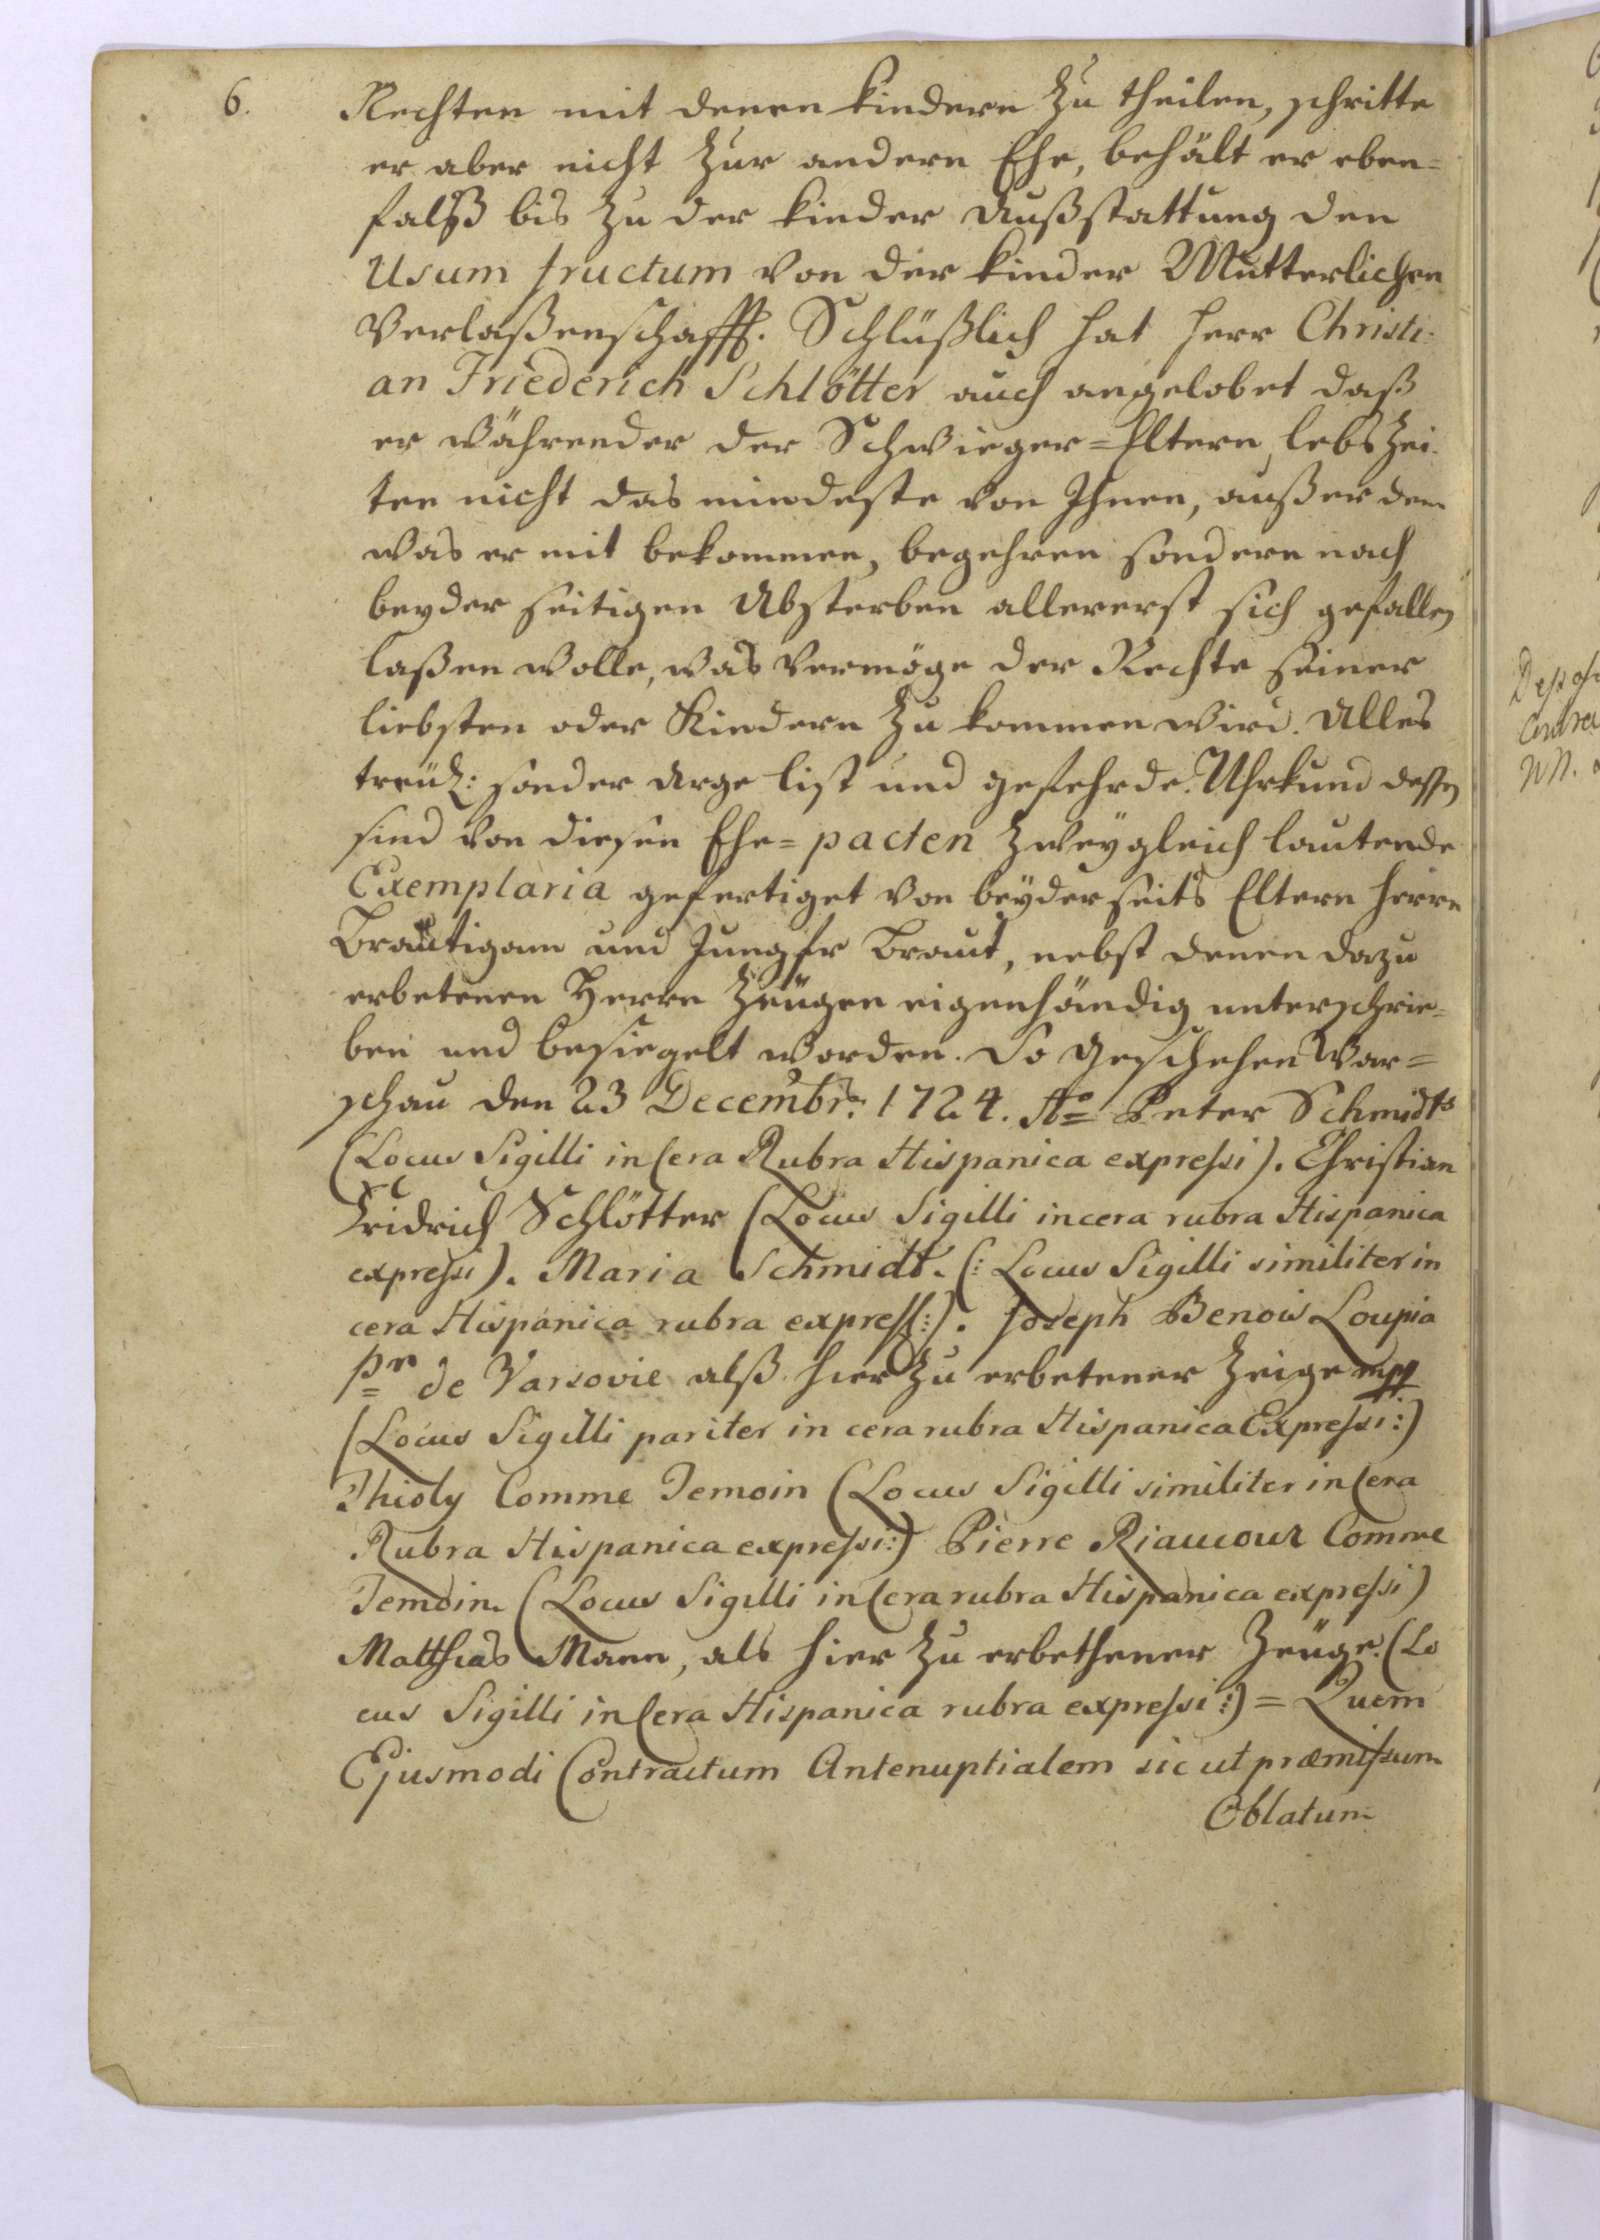 6.
Rechten mit denen kindern zu theilen, schritte
er aber nicht zur andern Ehe, behält er eben=
falß bis zu der kinder Außstattung den
Usum fructum von der kinder Mutterlichen
Verlaßenschafft. Schlüßlich hat Herr Christi-
an Friederich Schlötter auch angelobet daß
er währender der Schwieger=Eltern lebs Zei-
ten nicht das mindeste von Ihnen, außer dem
was er mit bekommen, begehren sondern nach
beyder seitigen Absterben allererst sich gefallen
laßen wolle, was vermöge der Rechte seiner
liebsten oder Kindern zu kommen wird. Alles
treül: sonder Arge list und gefehrde. Uhrkund dessen
sind von diesen Ehe=pacten zwey gleich lautende
Exemplaria gefertiget von beyderseits Eltern Herrn
Bräutigam und Jungfr Braut, nebst denen dazu
erbetenen Herrn Zeügen eigenhändig unterschrie=
ben und besiegelt worden. So Geschehen War=
schau den 23 Decembr: 1724. Ao Peter Schmidts
(Locus Sigilli in Cera Rubra Hispanica expressi). Christian
Fridrich Schlötter (Locus Sigilli in cera rubra Hispanica
expressi). Maria Schmidt. (: Locus Sigilli similiter in
cera Hispanica rubra express:). Joseph Benois Loupia
pr de Varsovie alß hier zu erbetener Zeige mpp
(Locus Sigilli pariter in cera rubra Hispanica Expressi:)
Thioly Comme Temoin (Locus Sigilli similiter in Cera
Rubra Hispanica expressi:) Pierre Riaucour Comme
Temoin (Locus Sigilli in Cera rubra Hispanica expressi)
Matthias Mann, als hier zu erbethener Zeüge. (Lo
cus Sigilli in Cera Hispanica rubra expressi:) = Quem
Ejusmodi Contractum Antenuptialem sic ut præmissum
Oblatum